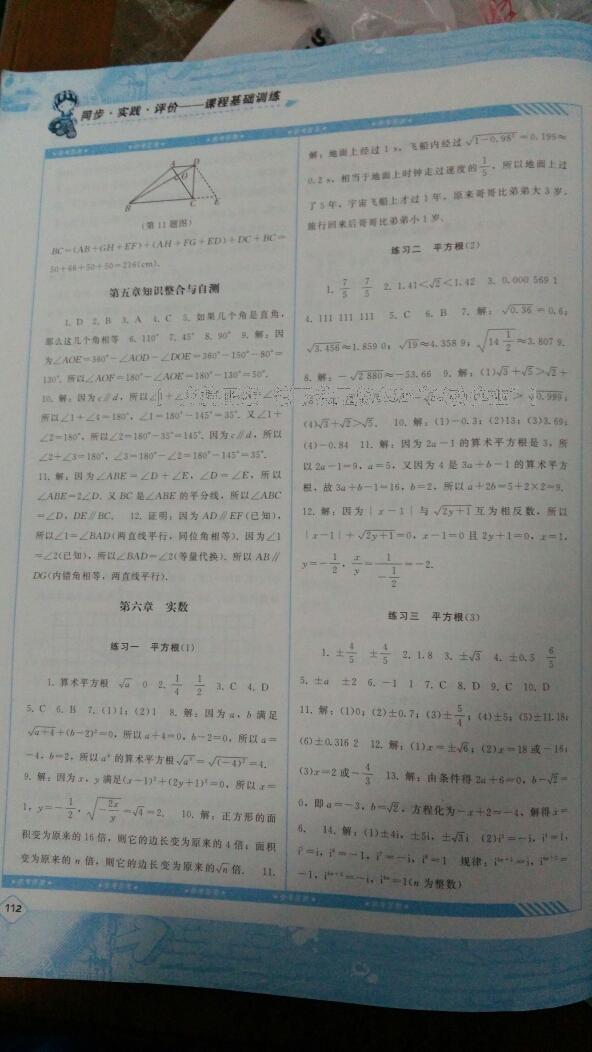 同步·实践·评价——课程基础训练
A D
O
B C E
(第11题图)
BC=(AB+GH+EF)+(AH+FG+ED)+DC+BC=
50+66+50+50=216(cm).
第五章知识整合与自测
1. D 2. B 3. A 4. C 5. 如果几个角是直角,
那么这几个角相等 6. 110° 7. 45° 8. 90° 9. 解:因
为∠AOE=360°-∠AOD-∠DOE=360°-150°-80°=
130°. 所以∠AOF=180°-∠AOE=180°-130°=50°.
10. 解:因为c∥d,所以
所以∠1+∠4=180°,∠1=180°-145°=35°. 又∠1+
∠2=180°,所以∠2=180°-35°=145°. 因为c∥d,所以
∠2+∠3=180°,∠3=180°-∠2=180°-145°=35°.
11. 解:因为∠ABE=∠D+∠E,∠D=∠E,所以
∠ABE=2∠D. 又BC是∠ABE的平分线,所以∠ABC
=∠D,DE∥BC. 12. 证明:因为AD∥EF(已知),
所以∠1=∠BAD(两直线平行,同位角相等). 因为∠1
=∠2(已知),所以∠BAD=∠2(等量代换). 所以AB∥
DG(内错角相等,两直线平行).
第六章 实数
练习一 平方根(1)
1. 算术平方根 √a 0 2. 1/4 1/2 3. C 4. D
5. C 6. B 7. (1)1;(2)1 8. 解:因为a、b满足
√(a+4)+(b-2)²=0,所以a+4=0,b-2=0,所以a=
-4,b=2,所以aᵇ的算术平方根√(aᵇ)=√((-4)²)=4.
9. 解:因为x,y满足(x-1)²+(2y+1)²=0,所以x=
1,y=-1/2,√(-2x/y)=√4=2. 10. 解:正方形的面
积变为原来的16倍,则它的边长变为原来的4倍;面积
变为原来的n倍,则它的边长变为原来的√n倍. 11.
解:地面上经过1 s,飞船内经过√(1-0.98²)=0.199≈
0.2 s,相当于地面上时钟走过速度的1/5,所以地面上过
了5年,宇宙飞船上才过1年,原来哥哥比弟弟大3岁.
旅行回来后哥哥比弟弟小1岁.
练习二 平方根(2)
1. 7/5 7/5 2. 1.41<√2<1.42 3. 0.000 569 1
4. 111 111 111 5. C 6. B 7. 解:√0.36=0.6;
√3.456≈1.859 0;√19≈4.358 9;√(14 1/2)≈3.807 9.
8. 解:-√2 880≈-53.66 9. 解:(1)√3+√5>√2+
√0.999;
(4)√3+√2>√5. 10. 解:(1)-0.3;(2)13;(3)3.69;
(4)-0.84 11. 解:因为2a-1的算术平方根是3,所
以2a-1=9,a=5,又因为4是3a+b-1的算术平方
根,故3a+b-1=16,b=2,所以a+2b=5+2×2=9.
12. 解:因为|x-1|与√(2y+1)互为相反数,所以
|x-1|+√(2y+1)=0,x-1=0且2y+1=0,x=1,
y=-1/2,x/y=1/(-1/2)=-2.
练习三 平方根(3)
1. ±4/5 ±4/5 2. 1.8 3. ±√3 4. ±0.5 6/5
5. ±a ±2 6. -1 1 7. C 8. D 9. C 10. D
11. 解:(1)0;(2)±0.7;(3)±5/4;(4)±5;(5)±11.18;
(6)±0.316 2 12. 解:(1)x=±√6;(2)x=18或-16;
(3)x=2或-4/3 13. 解:由条件得2a+6=0,b-√2=
0,即a=-3,b=√2,方程化为-x+2=-4,解得x=
6. 14. 解:(1)±4i,±5i,±√3i;(2)i³=-i,i⁴=1,
i⁵=i,i⁶=-1,i⁷=-i,i⁸=1 规律:i⁴ⁿ⁺¹=i,i⁴ⁿ⁺²=
-1,i⁴ⁿ⁺³=-i,i⁴ⁿ=1(n为整数)
112